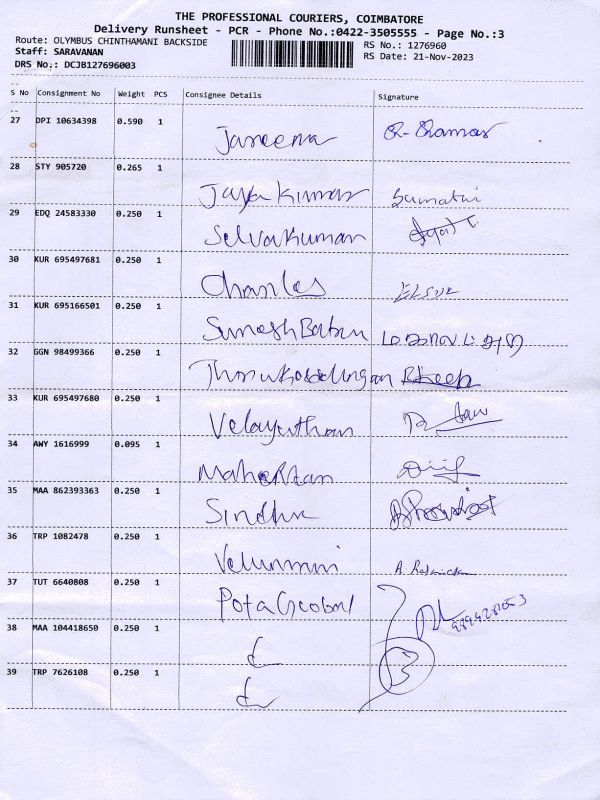 THE PROFESSIONAL COURIERS, COIMBATORE
Delivery Runsheet - PCR - Phone No.:0422-3505555 - Page No.:3
Route: OLYMBUS CHINTHAMANI BACKSIDE RS No.: 1276960
Staff: SARAVANAN RS Date: 21-Nov-2023
DRS No.: DCJB127696003
S No Consignment No Weight PCS Consignee Details Signature
27 DPI 10634398 0.590 1
Janeena
28 STY 905720 0.265 1
Jayakumar Sumathi
29 EDQ 24583330 0.250 1
Selvakumar
30 KUR 695497681 0.250 1
Charles
31 KUR 695166501 0.250 1
Suresh Babu
32 GGN 98499366 0.250 1
33 KUR 695497680 0.250 1
Velayuthan
34 AWY 1616999 0.095 1
35 MAA 862393363 0.250 1
Sindhu
36 TRP 1082478 0.250 1
Velumani
37 TUT 6640808 0.250 1
38 MAA 104418650 0.250 1
39 TRP 7626108 0.250 1